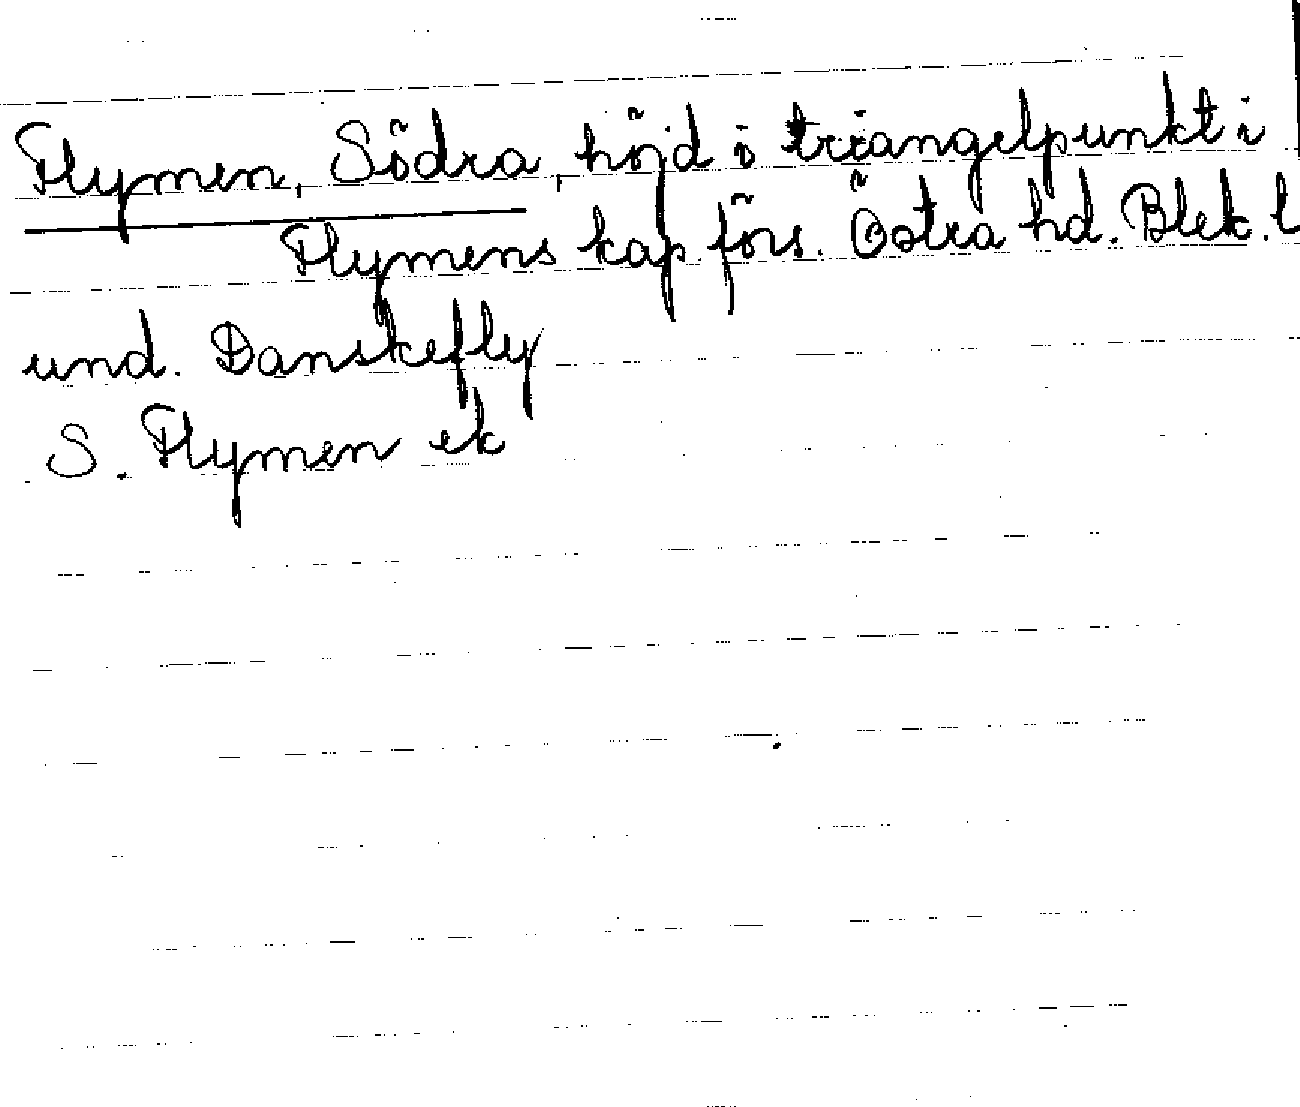 Flymen, Södra, höjd o triangelpunkt i
Flymens kap.förs. Östra hd. Blek. l
und. Danskefly
S. Flymen ek